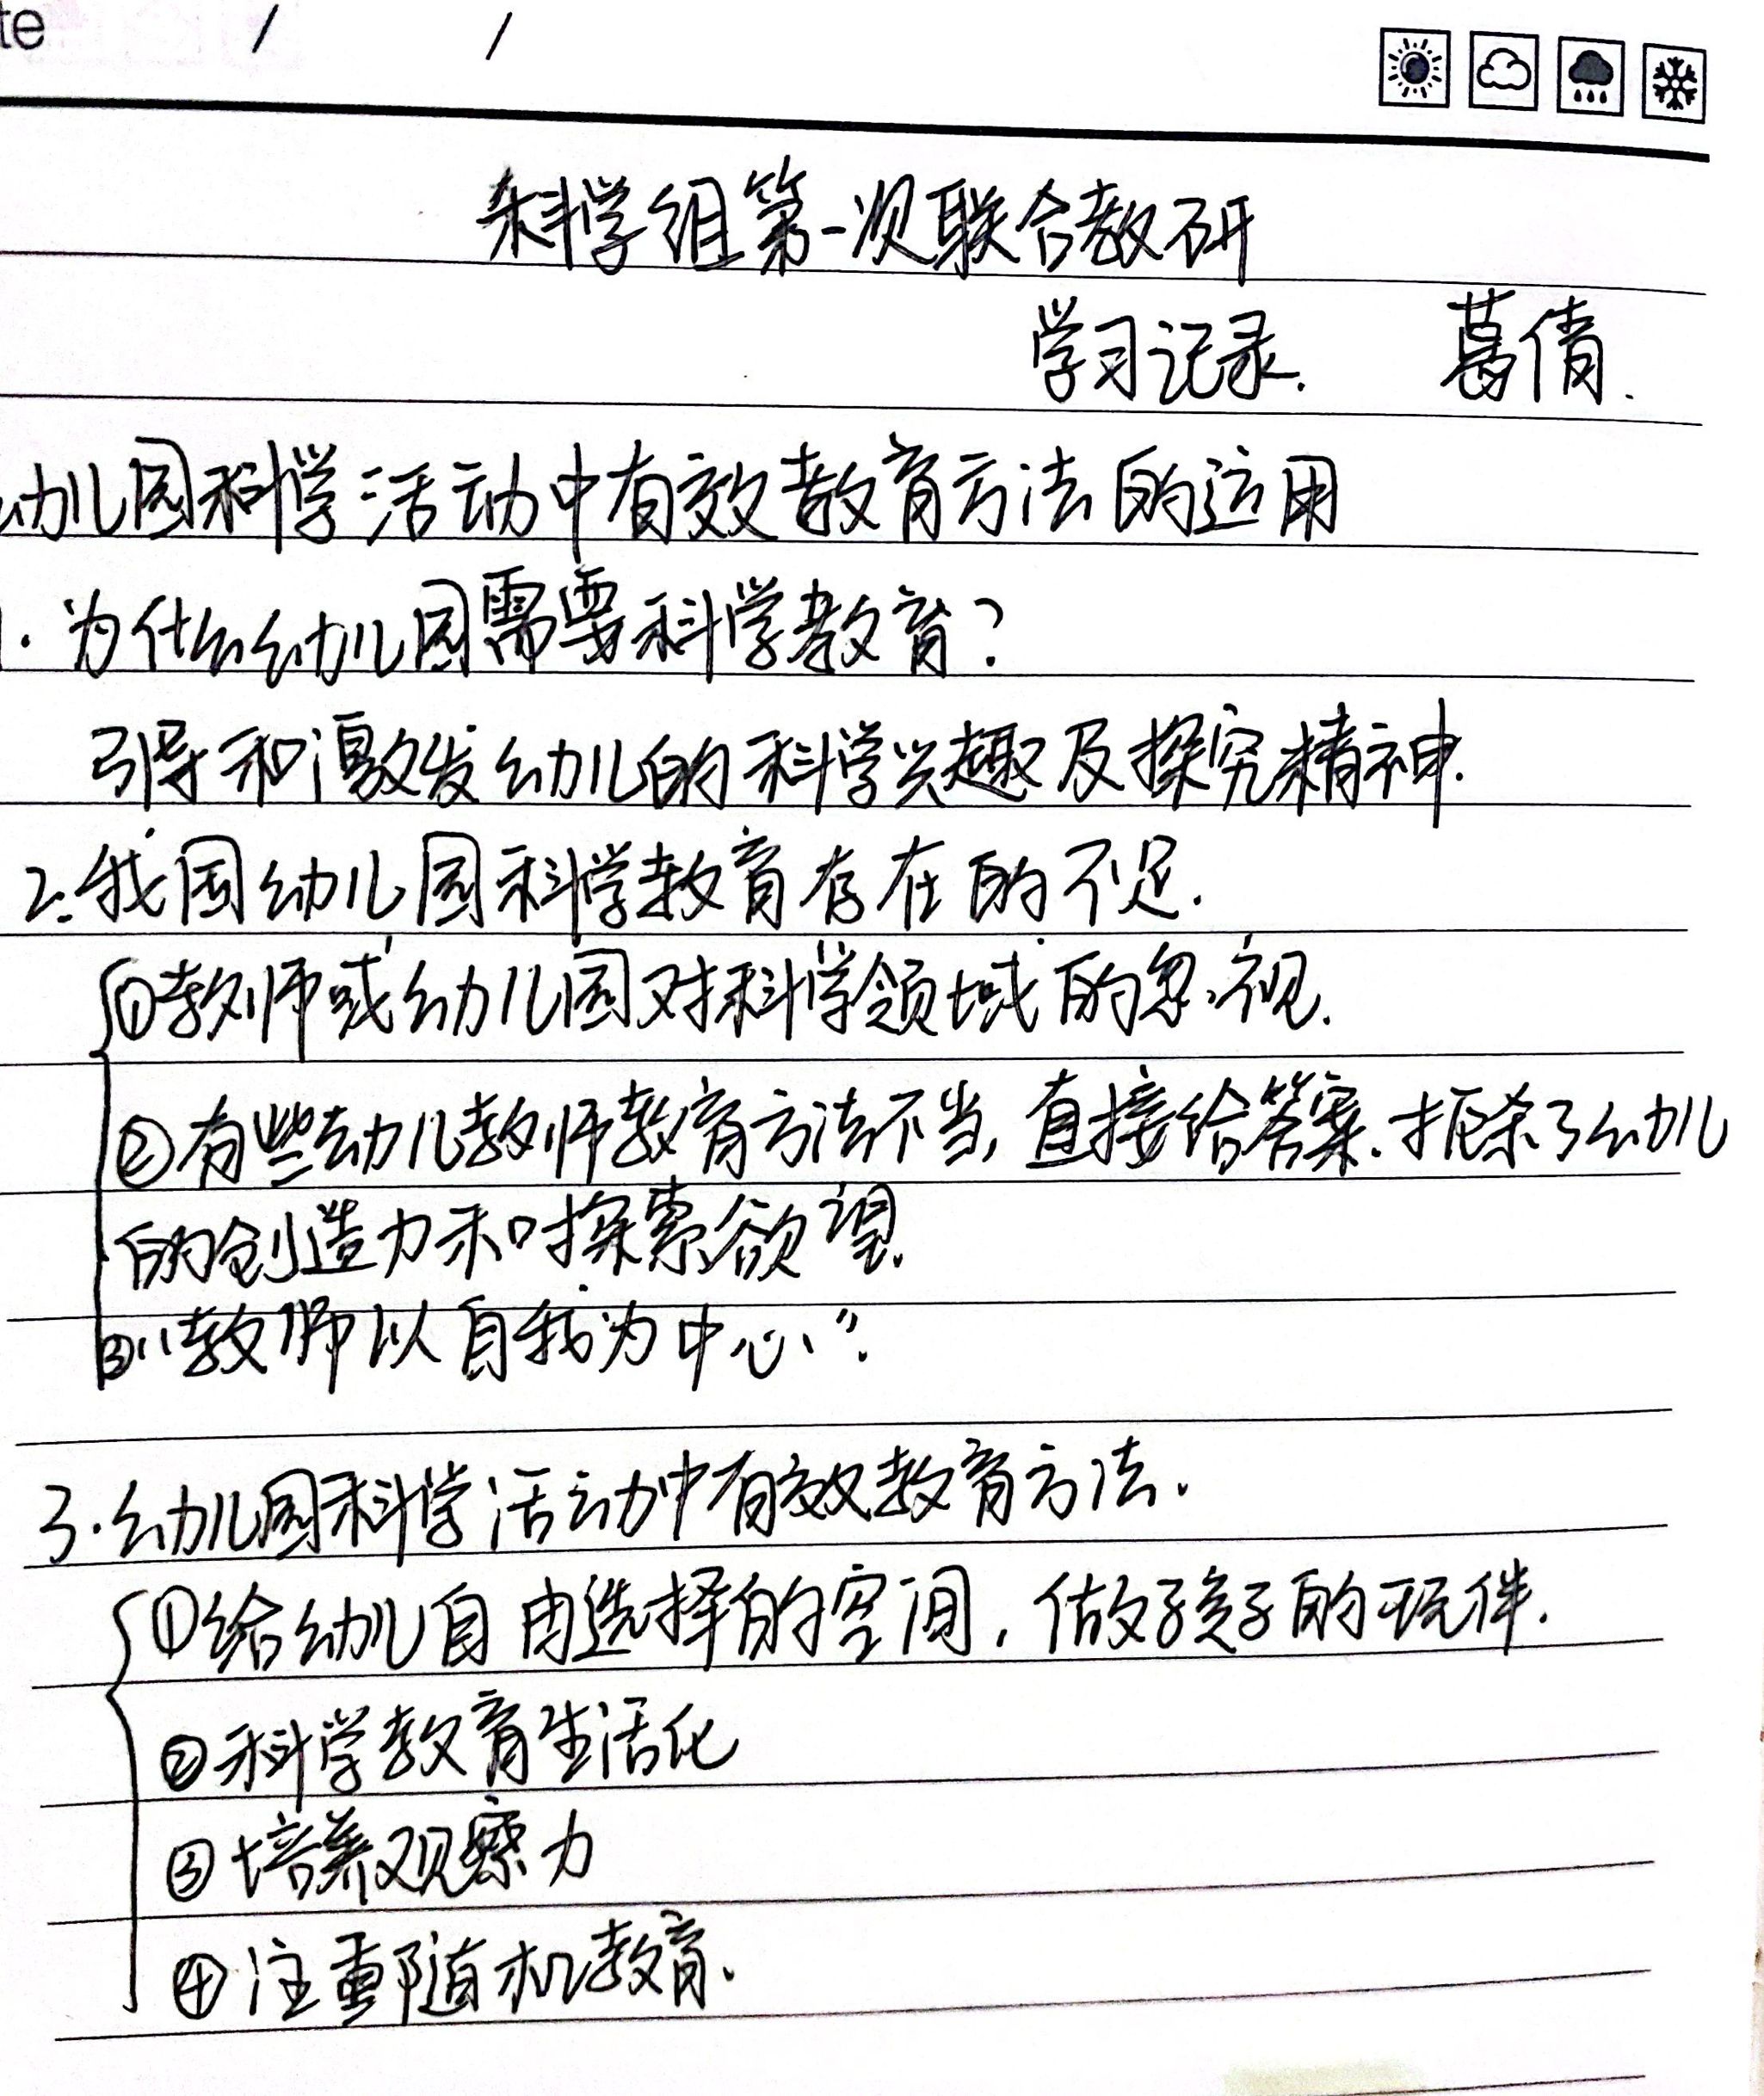 te / /
科学组第一次联合教研
学习记录. 葛倩.
幼儿园科学活动中有效教育方法的运用
1.为什么幼儿园需要科学教育?
引导和激发幼儿的科学兴趣及探究精神.
2.我国幼儿园科学教育存在的不足.
①教师或幼儿园对科学领域的忽视.
②有些幼儿教师教育方法不当,直接给答案.扼杀了幼儿
的创造力和探索欲望.
③“教师以自我为中心”.
3.幼儿园科学活动中有效教育方法.
①给幼儿自由选择的空间,做孩子的玩伴.
②科学教育生活化
③培养观察力
④注重随机教育.